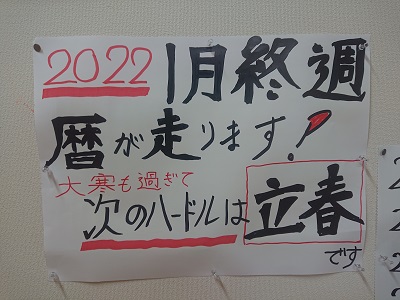 2022 1月終週
暦が走ります!
大寒も過ぎて
次のハードルは立春
です